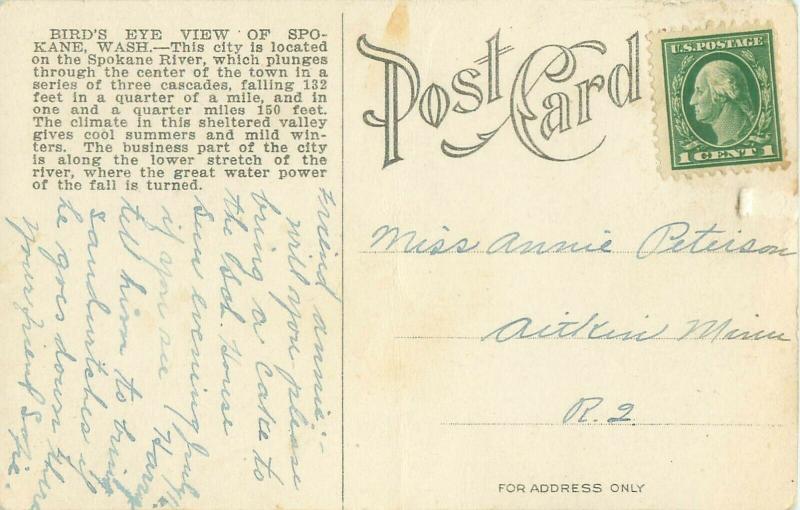 BIRD'S EYE VIEW OF SPO-
KANE, WASH.—This city is located
on the Spokane River, which plunges
through the center of the town in a
series of three cascades, falling 132
feet in a quarter of a mile, and in
one and a quarter miles 150 feet.
The climate in this sheltered valley
gives cool summers and mild win-
ters. The business part of the city
is along the lower stretch of the
river, where the great water power
of the fall is turned.
Friend annie:-
will you please
bring a Cake to
the Sch. House
Sun evening July
if you see Harry
tell him to bring
Sandwitches if
he goes down there
your friend Sofie.
Post Card
U.S. POSTAGE
1 CENT 1
Miss Annie Peterson
Aitkin Minn
R. 2
FOR ADDRESS ONLY